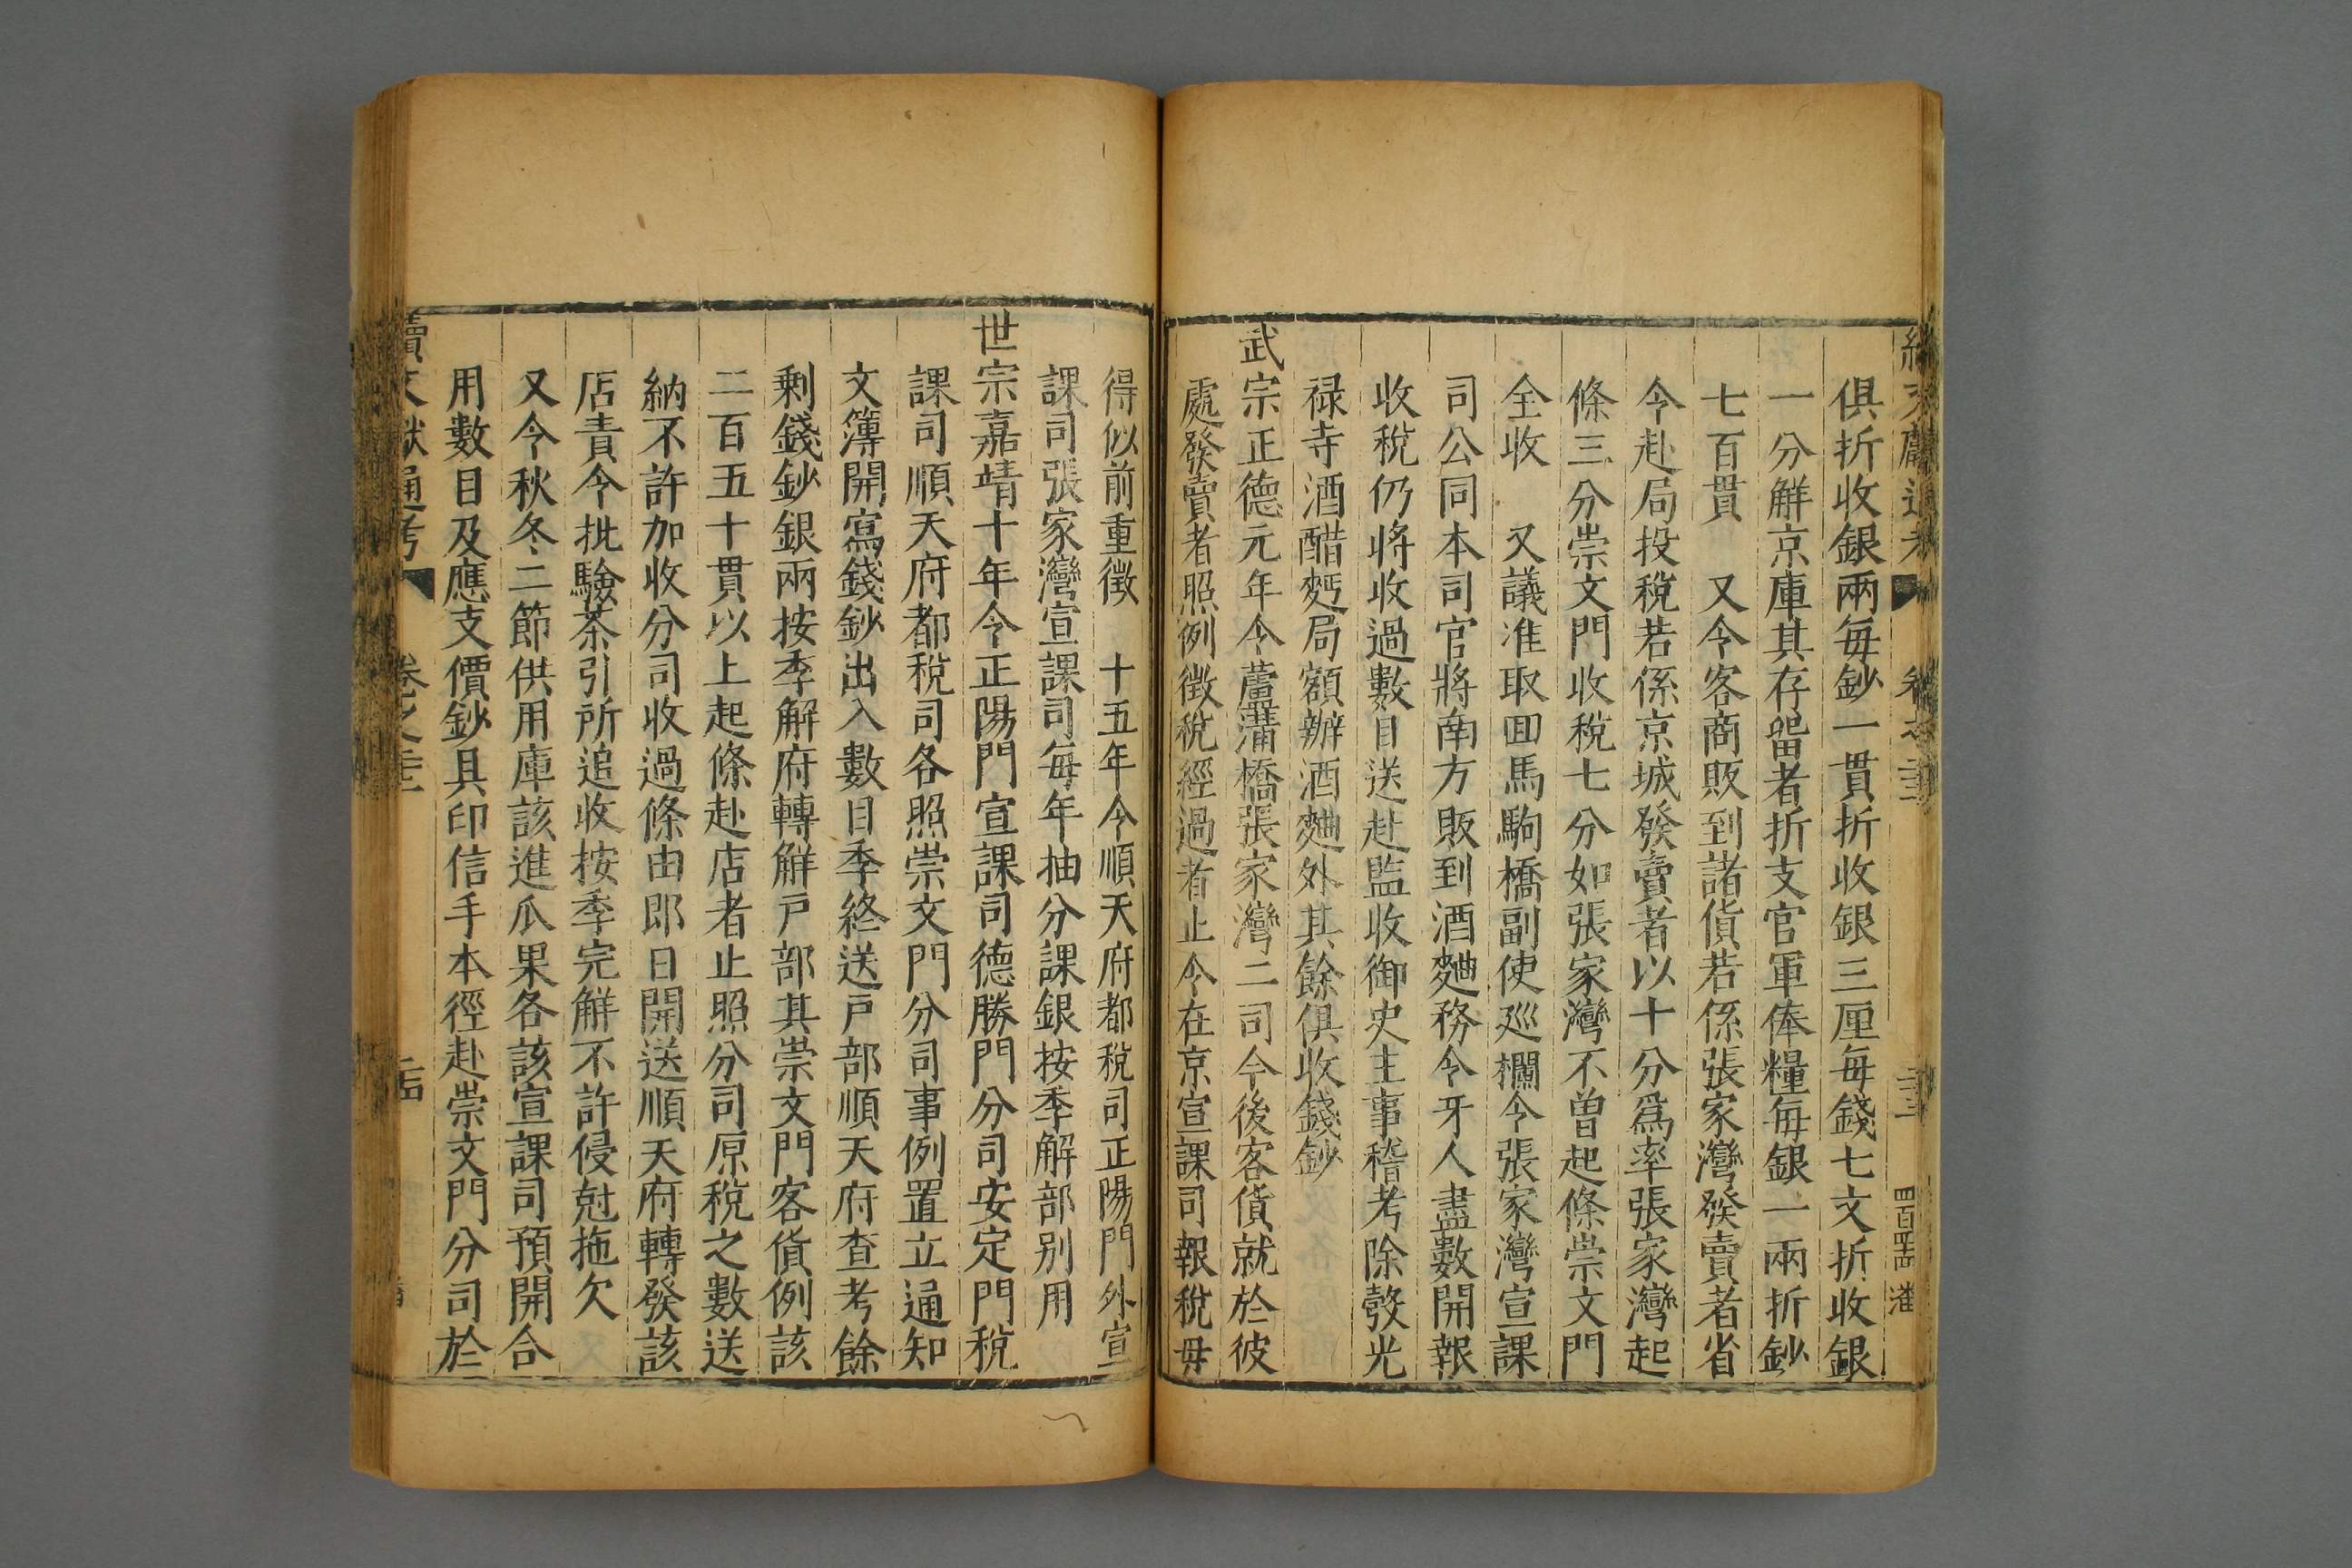 俱折收銀兩每鈔一貫折收銀三厘每錢七文折收銀
一分解京庫其存畱者折支官軍俸糧每銀一兩折鈔
七百貫　又令客商販到諸貨若係張家灣發賣者省
令赴局投稅若係京城發賣者以十分爲率張家灣起
條三分崇文門收稅七分如張家灣不曾起條崇文門
全收　又議准取回馬駒橋副使廵攔令張家灣宣課
司公同本司官將南方販到酒麯務令牙人盡數開報
收稅仍將收過數目送赴監收御史主事稽考除發光
禄寺酒醋麪局額辦酒麯外其餘俱收錢鈔
武宗正德元年令蘆溝橋張家灣二司今後客貨就於彼
處發賣者照例徵稅經過者止令在京宣課司報稅毋
得似前重徵　十五年令順天府都稅司正陽門外宣
課司張家灣宣課司每年抽分課銀按季解部别用
世宗嘉靖十年令正陽門宣課司德勝門分司安定門稅
課司順天府都稅司各照崇文門分司事例置立通知
文簿開寫錢鈔出入數目季終送戸部順天府查考餘
剩錢鈔銀兩按季解府轉解戸部其崇文門客貨例該
二百五十貫以上起條赴店者止照分司原稅之數送
納不許加收分司收過條由即日開送順天府轉發該
店責令批驗茶引所追收按季完解不許侵尅拖欠
又令秋冬二節供用庫該進瓜果各該宣課司預開合
用數目及應支價鈔具印信手本徑赴崇文門分司於
續文獻通考　卷之